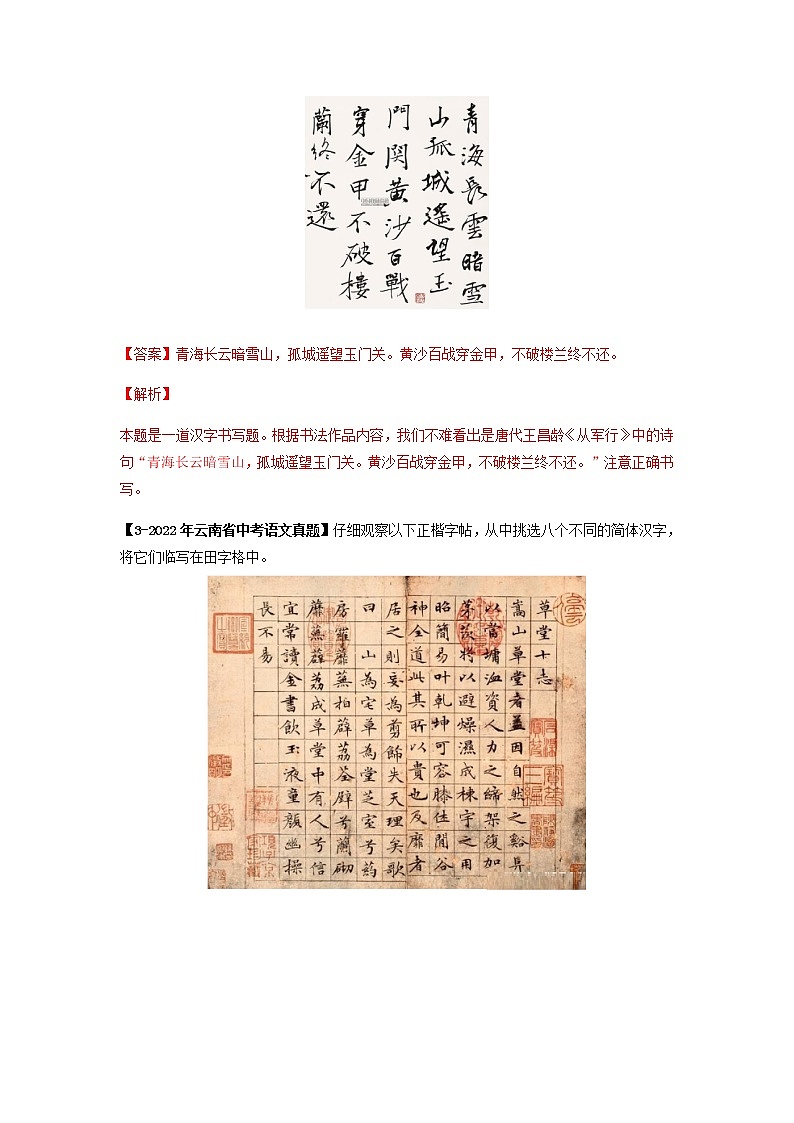 青海長雲暗雪
山孤城遥望玉
門関黄沙百戰
穿金甲不破樓
蘭終不還
【答案】青海长云暗雪山，孤城遥望玉门关。黄沙百战穿金甲，不破楼兰终不还。
【解析】
本题是一道汉字书写题。根据书法作品内容，我们不难看出是唐代王昌龄《从军行》中的诗
句“青海长云暗雪山，孤城遥望玉门关。黄沙百战穿金甲，不破楼兰终不还。”注意正确书
写。
【3-2022年云南省中考语文真题】仔细观察以下正楷字帖，从中挑选八个不同的简体汉字，
将它们临写在田字格中。
草堂十志
嵩山草堂者盖因自然之谿阜
以當墉洫資人力之締架復加
茅茨将以避燥濕成棟宇之用
昭簡易叶乾坤可容膝休閒谷
神全道此其所以貴也及靡者
居之則妄為剪飾失天理矣歌
曰 山為宅草為堂芝室兮葯
房羅蘼蕪拍薜荔荃壁兮蘭砌
蘼蕪薜荔成草堂中有人兮信
宜常讀金書飲玉液童顏幽操
長不易